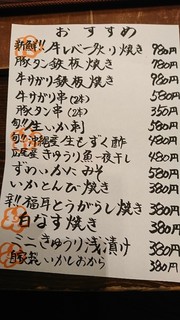 おすすめ
新鮮!! 牛レバー炙り焼き 980円
豚タン鉄板焼き 780円
牛サガリ鉄板焼き 980円
牛サガリ串(2本) 580円
豚タン串(2本) 350円
旬!! 生いか刺 580円
旬!! 沖縄産生もずく酢 480円
広尾産きゅうり魚一夜干し 480円
ずわいかにみそ 580円
いかとんび焼き 380円
辛!! 福耳とうがらし焼き 380円
白なす焼き 380円
ミニきゅうり浅漬け 380円
自家製いかしおから 380円